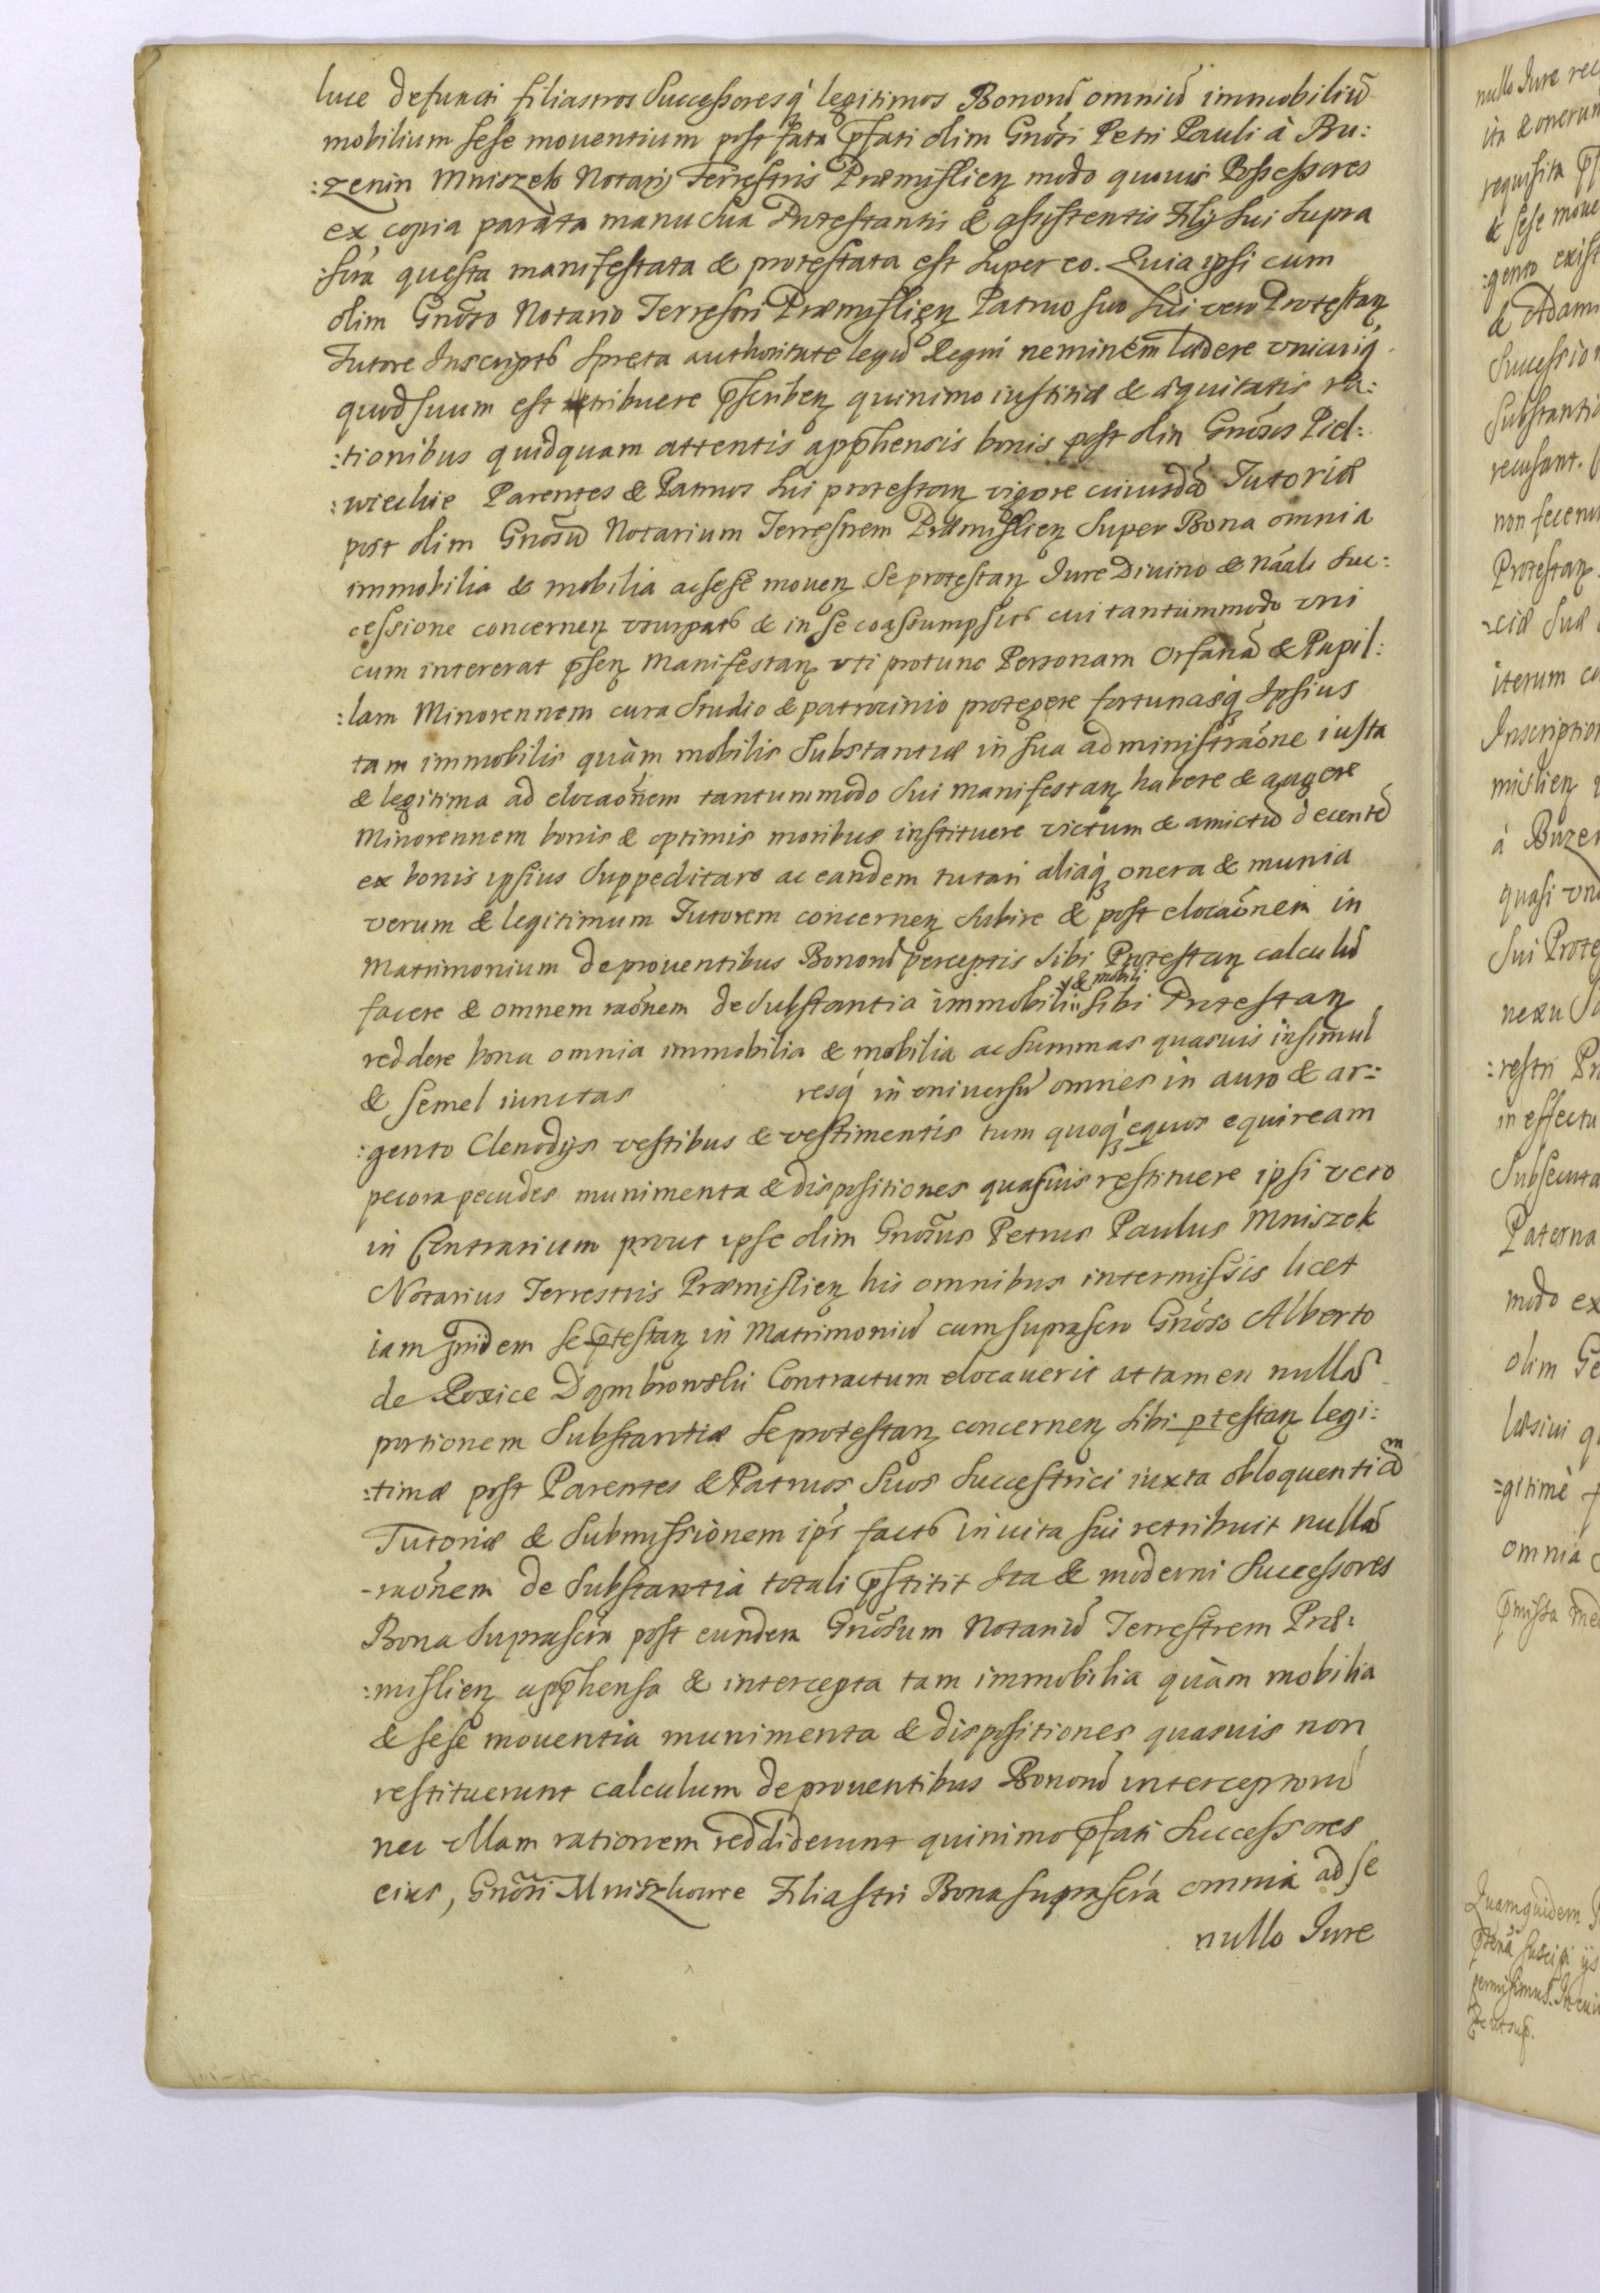 luce defuncti filiastros Successoresq́ legitimos Bonorū omniū immobiliū
mobilium sese mouentium post fata p̄fati olim Gnōsi Petri Pauli à Bu:
:zenin Mniszek Notarij Terrestris Præmislien̨ modo quouis Possessores
ex copia parata manu sua Protestantis & assistentis Filij sui supra
:scrā questa manifestata & protestata est super eo. Quia ipsi cum
olim Gnōso Notario Terrestri Præmislien̨ Patruo suo sui vero Protestan̨
Tutore Inscripto spreta authoritate legū Regni neminem lædere vnicuiq́
quod suum est tribuere p̄scriben̨ quinimo iustitiæ & æquitatis ra:
:tionibus quidquam attentis apphensis bonis post olim Gnōsos Piel:
:wieckie Parentes & Patruos sui protestan̨ vigore cuiusdā Tutoriæ
post olim Gnōsū Notarium Terrestrem Præmislien̨ super Bona omnia
immobilia & mobilia ac sese mouen̨ se protestan̨ Iure Diuino & nāali suc:
cessione concernen̨ vsurpato & in se coassumpsito cui tantummodo vni
cum intererat p̄sen̨ Manifestan̨ vti protunc Personam Orfanā & Pupil:
:lam Minorennem cura studio & patrocinio protegere fortunasq́ Ipsius
tam immobilis quàm mobilis Substantiæ in sua administraōne iusta
& legitima ad elocaōnem tantummodo sui Manifestan̨ habere & augere
Minorennem bonis & optimis moribus instituere victum & amictū decentē
ex bonis ipsius suppeditare ac eandem tutari aliaq́ onera & munia
verum & legitimum Tutorem concernen̨ subire & post elocaōnem in
Matrimonium de prouentibus Bonorū perceptis sibi Protestan̨ calculū
& mobili
facere & omnem raōnem de substantia immobili sibi Protestan̨
reddere bona omnia immobilia & mobilia ac summas quasuis insimul
& semel iunctas resq́ in vniuersū omnes in auro & ar:
:gento Clenodijs vestibus & vestimentis tum quoq́ equos equiream
pecora pecudes munimenta & dispositiones quasuis restituere ipsi vero
in Contrarium prout ipse olim Gnōsus Petrus Paulus Mniszek
Notarius Terrestris Præmislien̨ his omnibus intermissis licet
iam pridem se p̄testan̨ in Matrimoniū cum suprascro Gnōso Alberto
de Poxice Dąmbrowski Contractum elocauerit attamen nullā
portionem Substantiæ se protestan̨ concernen̨ sibi ptestan̨ legi:
:timæ post Parentes & Patruos suos Succestrici iuxta obloquentiam
Tutoriæ & submissionem ipī facto in vita sui retribuit nullā
-raōnem de substantia totali p̄stitit Ita & moderni Successores
Bona suprascra post eundem Gnōsum Notariū Terrestrem Præ:
:mislien̨ apphensa & intercepta tam immobilia quàm mobilia
& sese mouentia munimenta & dispositiones quasuis non
restituerunt calculum de prouentibus Bonorū interceptorū
nec ullam rationem reddiderunt quinimo p̄fati Successores
eius, Gnōsi Mniszkowie Filiastri Bona suprascrā omnia ad se
nullo Iure
nullo Iure
ita & onerum
requisita
& sese moue
:gento exist
& Adam
Succession
Substantia
recusant.
non feceru
Protestan̨
:ciæ suæ
iterum
Inscription
mislien̨
à Buzen
quasi
sui Prote
nexu
:restri
in effectu
subsecuta
Paterna
modo ex
olim
læsiui
=gitimè
omnia
Quamquidem
suscipi ijs
permisimus.